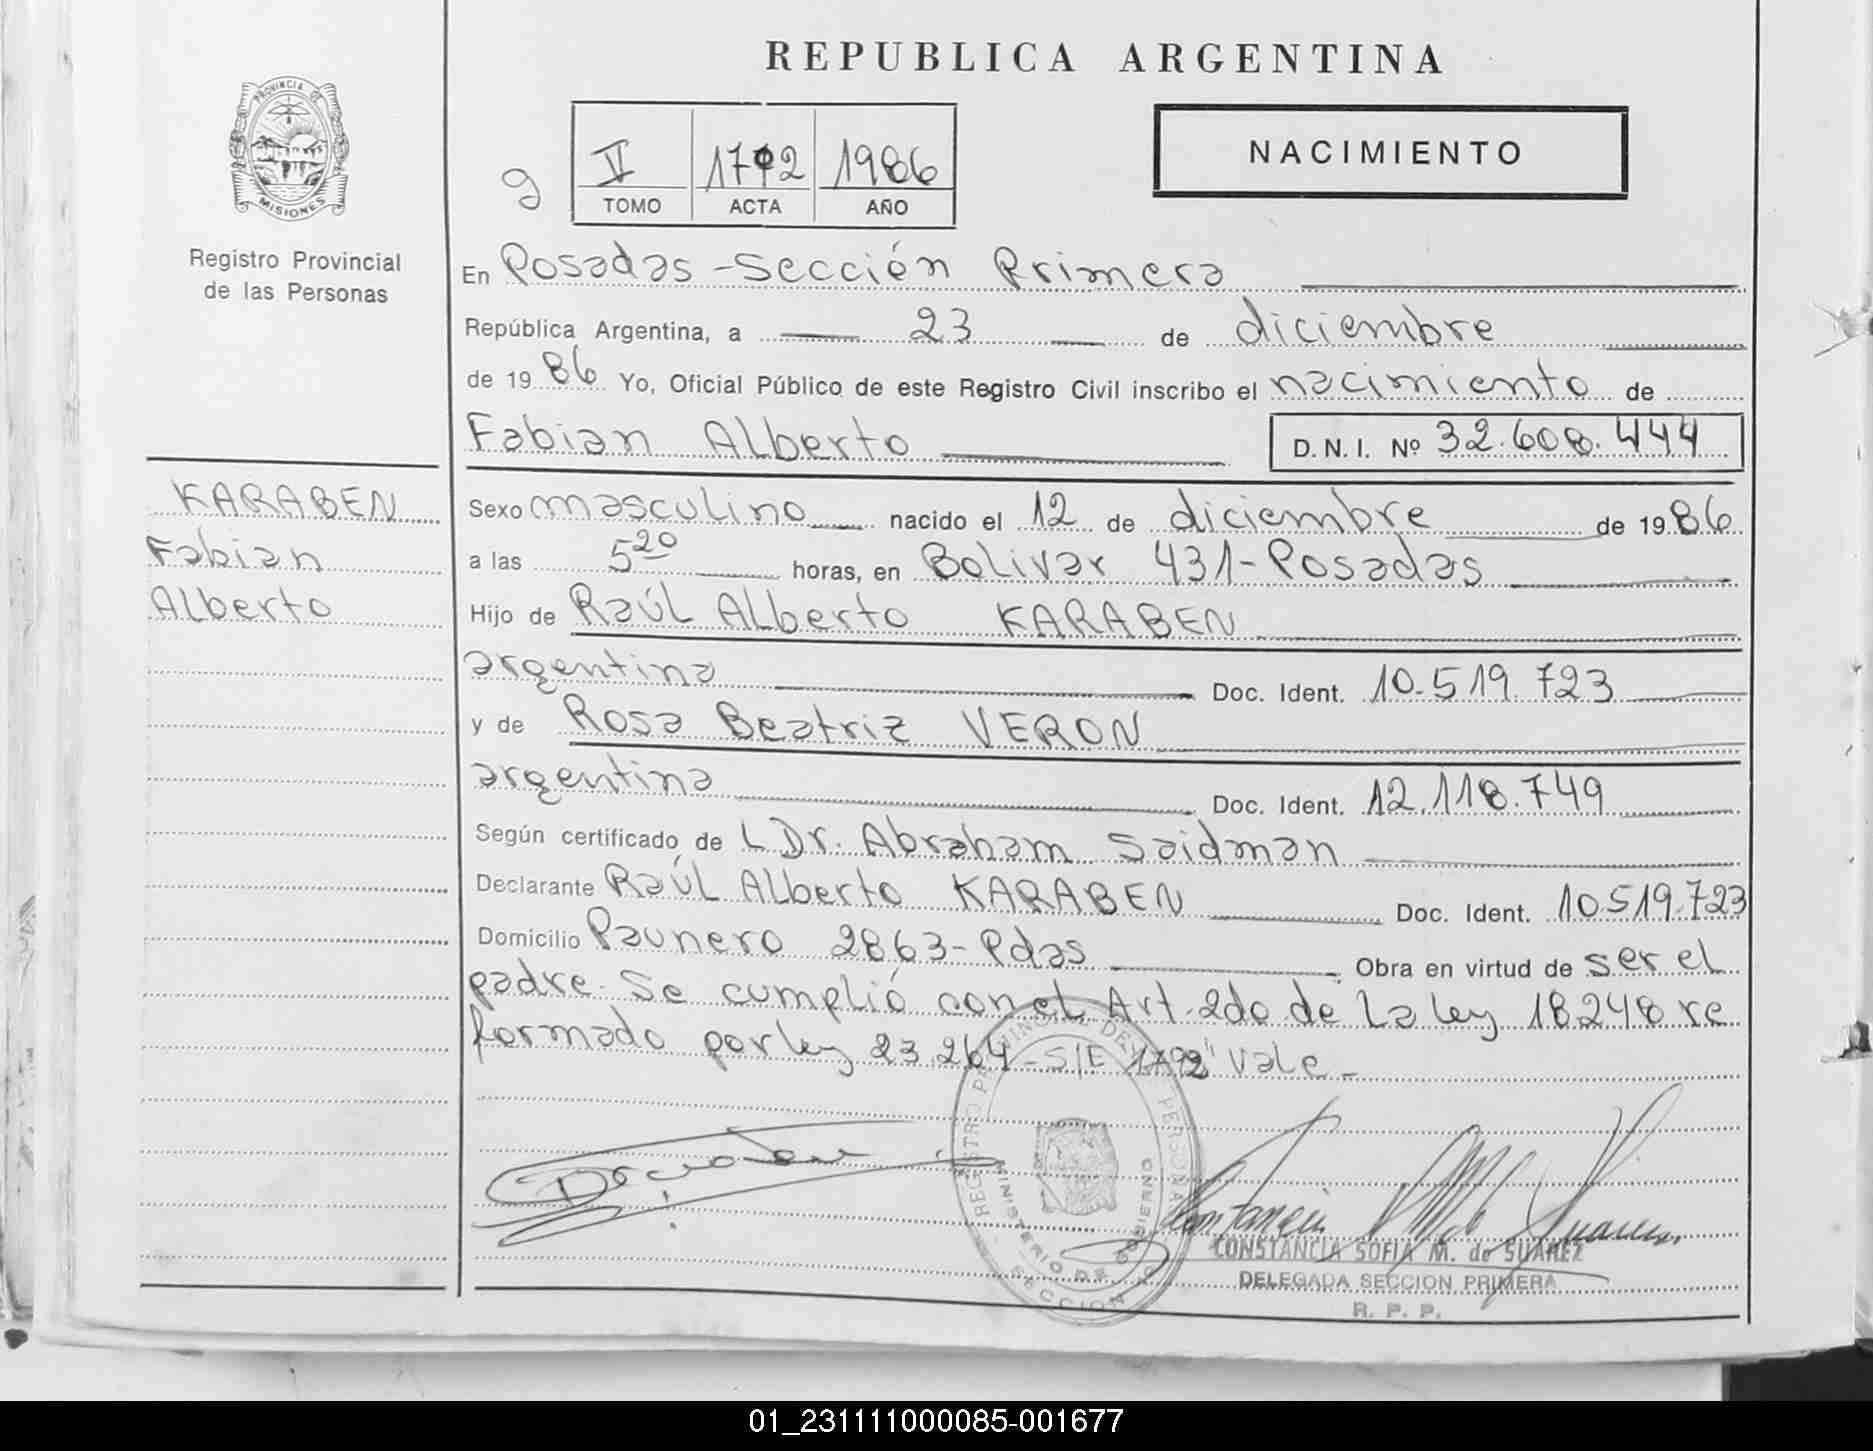 REPUBLICA ARGENTINA
PROVINCIA DE
MISIONES
Registro Provincial
de las Personas
9
V 1792 1986
TOMO ACTA AÑO
NACIMIENTO
En Posadas - Sección Primera
República Argentina, a 23 de diciembre
de 1986 Yo, Oficial Público de este Registro Civil inscribo el nacimiento de
Fabian Alberto D.N.I. Nº 32.608.444
KARABEN
Fabian
Alberto
Sexo masculino nacido el 12 de diciembre de 1986
a las 5 20 horas, en Bolivar 431 - Posadas
Hijo de Raúl Alberto KARABEN
argentina Doc. Ident. 10.519.723
y de Rosa Beatriz VERON
argentina Doc. Ident. 12.118.749
Según certificado de L Dr. Abraham Saidman
Declarante Raúl Alberto KARABEN Doc. Ident. 10.519.723
Domicilio Paunero 2863 - Pdas Obra en virtud de ser el
padre. Se cumplió con el Art. 2do de La ley 18248 re
formado por ley 23.264 - S/E "1792" Vale -
REGISTRO PROVINCIAL DE LAS PERSONAS
MINISTERIO DE GOBIERNO
SECCION
CONSTANCIA SOFIA M. de SUAREZ
DELEGADA SECCION PRIMERA
R. P. P.
01_231111000085-001677